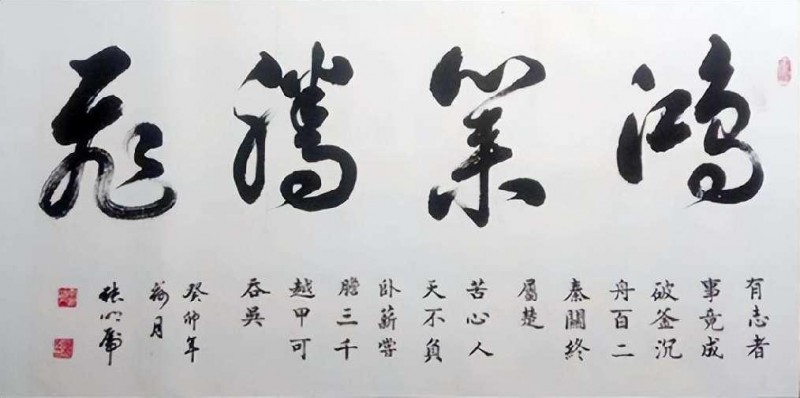 鴻業騰飛
有志者
事竟成
破釜沉
舟百二
秦關終
屬楚
苦心人
天不負
卧薪嘗
膽三千
越甲可
吞吳
癸卯年
月